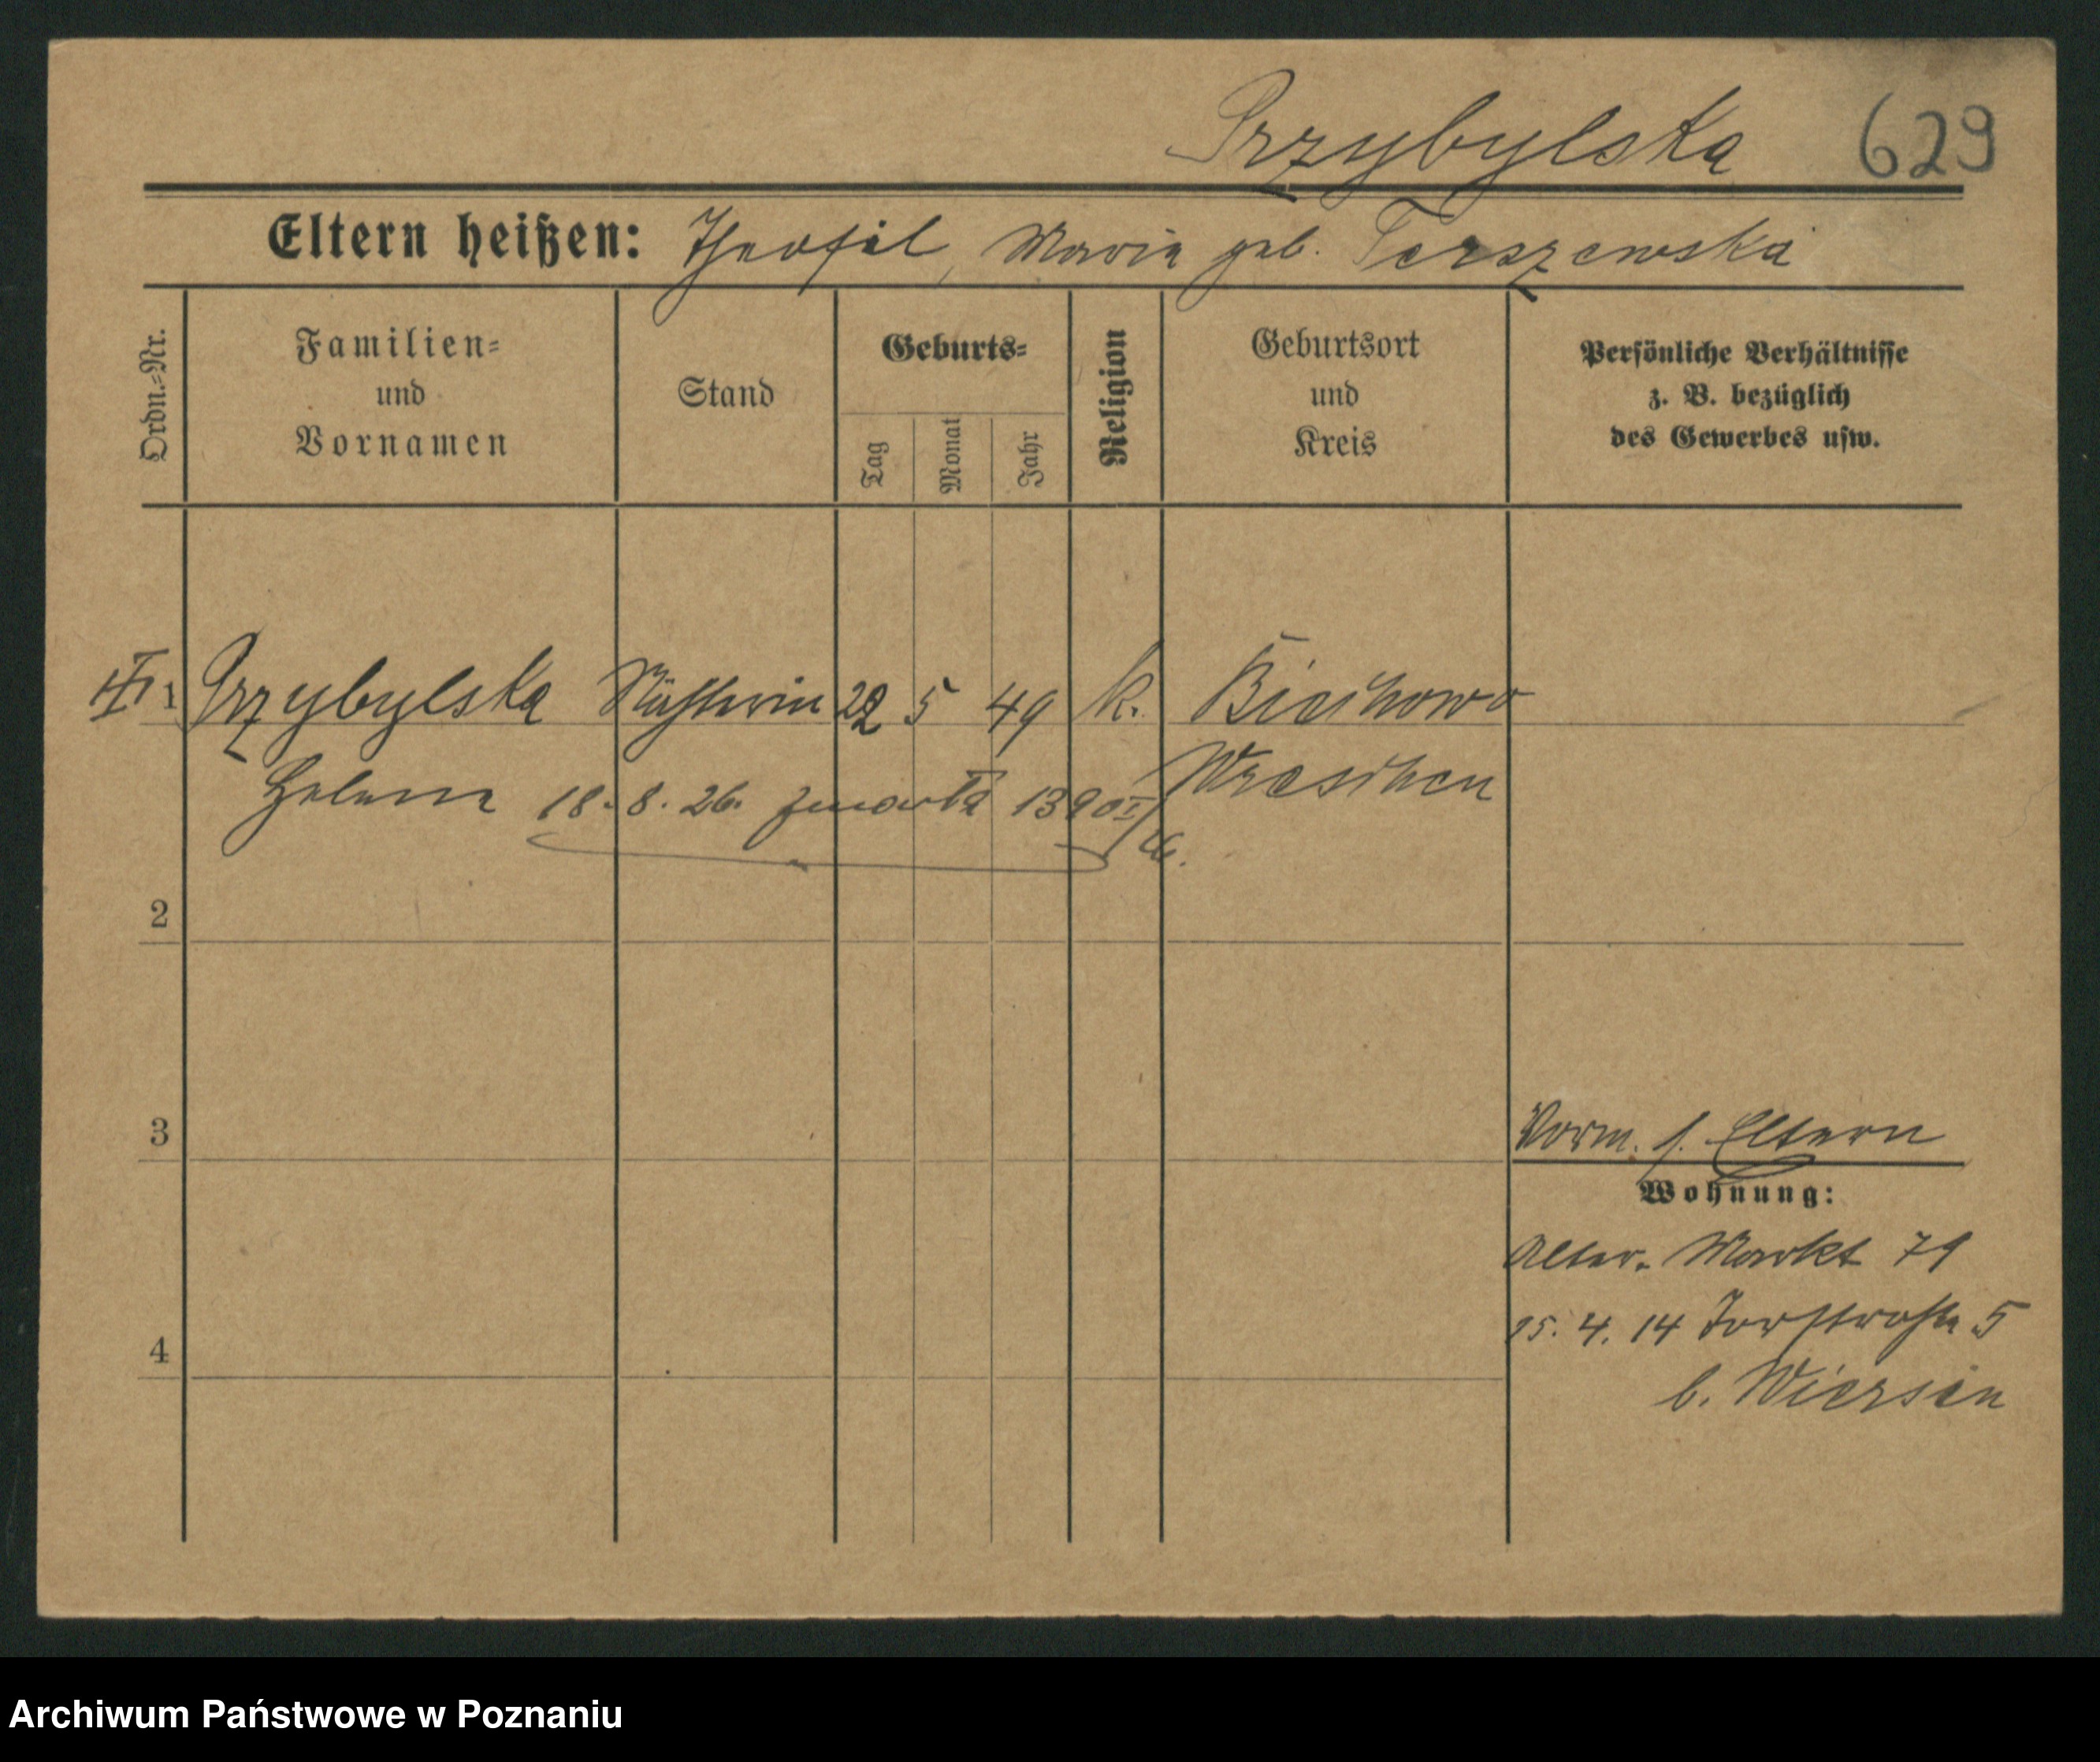 Przybylska 629
Eltern heißen: Theofil, Maria geb. Terszewska
Ordn.=Nr.
Familien=
und
Vornamen
Stand
Geburts=
Tag
Monat
Jahr
Religion
Geburtsort
und
Kreis
Persönliche Verhältnisse
z. B. bezüglich
des Gewerbes usw.
1 Przybylska Näherin 22 5 49 k. Biechowo
Helena 18. 8. 26. zmarła 1390 Wreschen
2
3
Vorm. s. Eltern
Wohnung:
Alter Markt 79
15. 4. 14 Torstraße 5
4
b. Wiersen
Archiwum Państwowe w Poznaniu